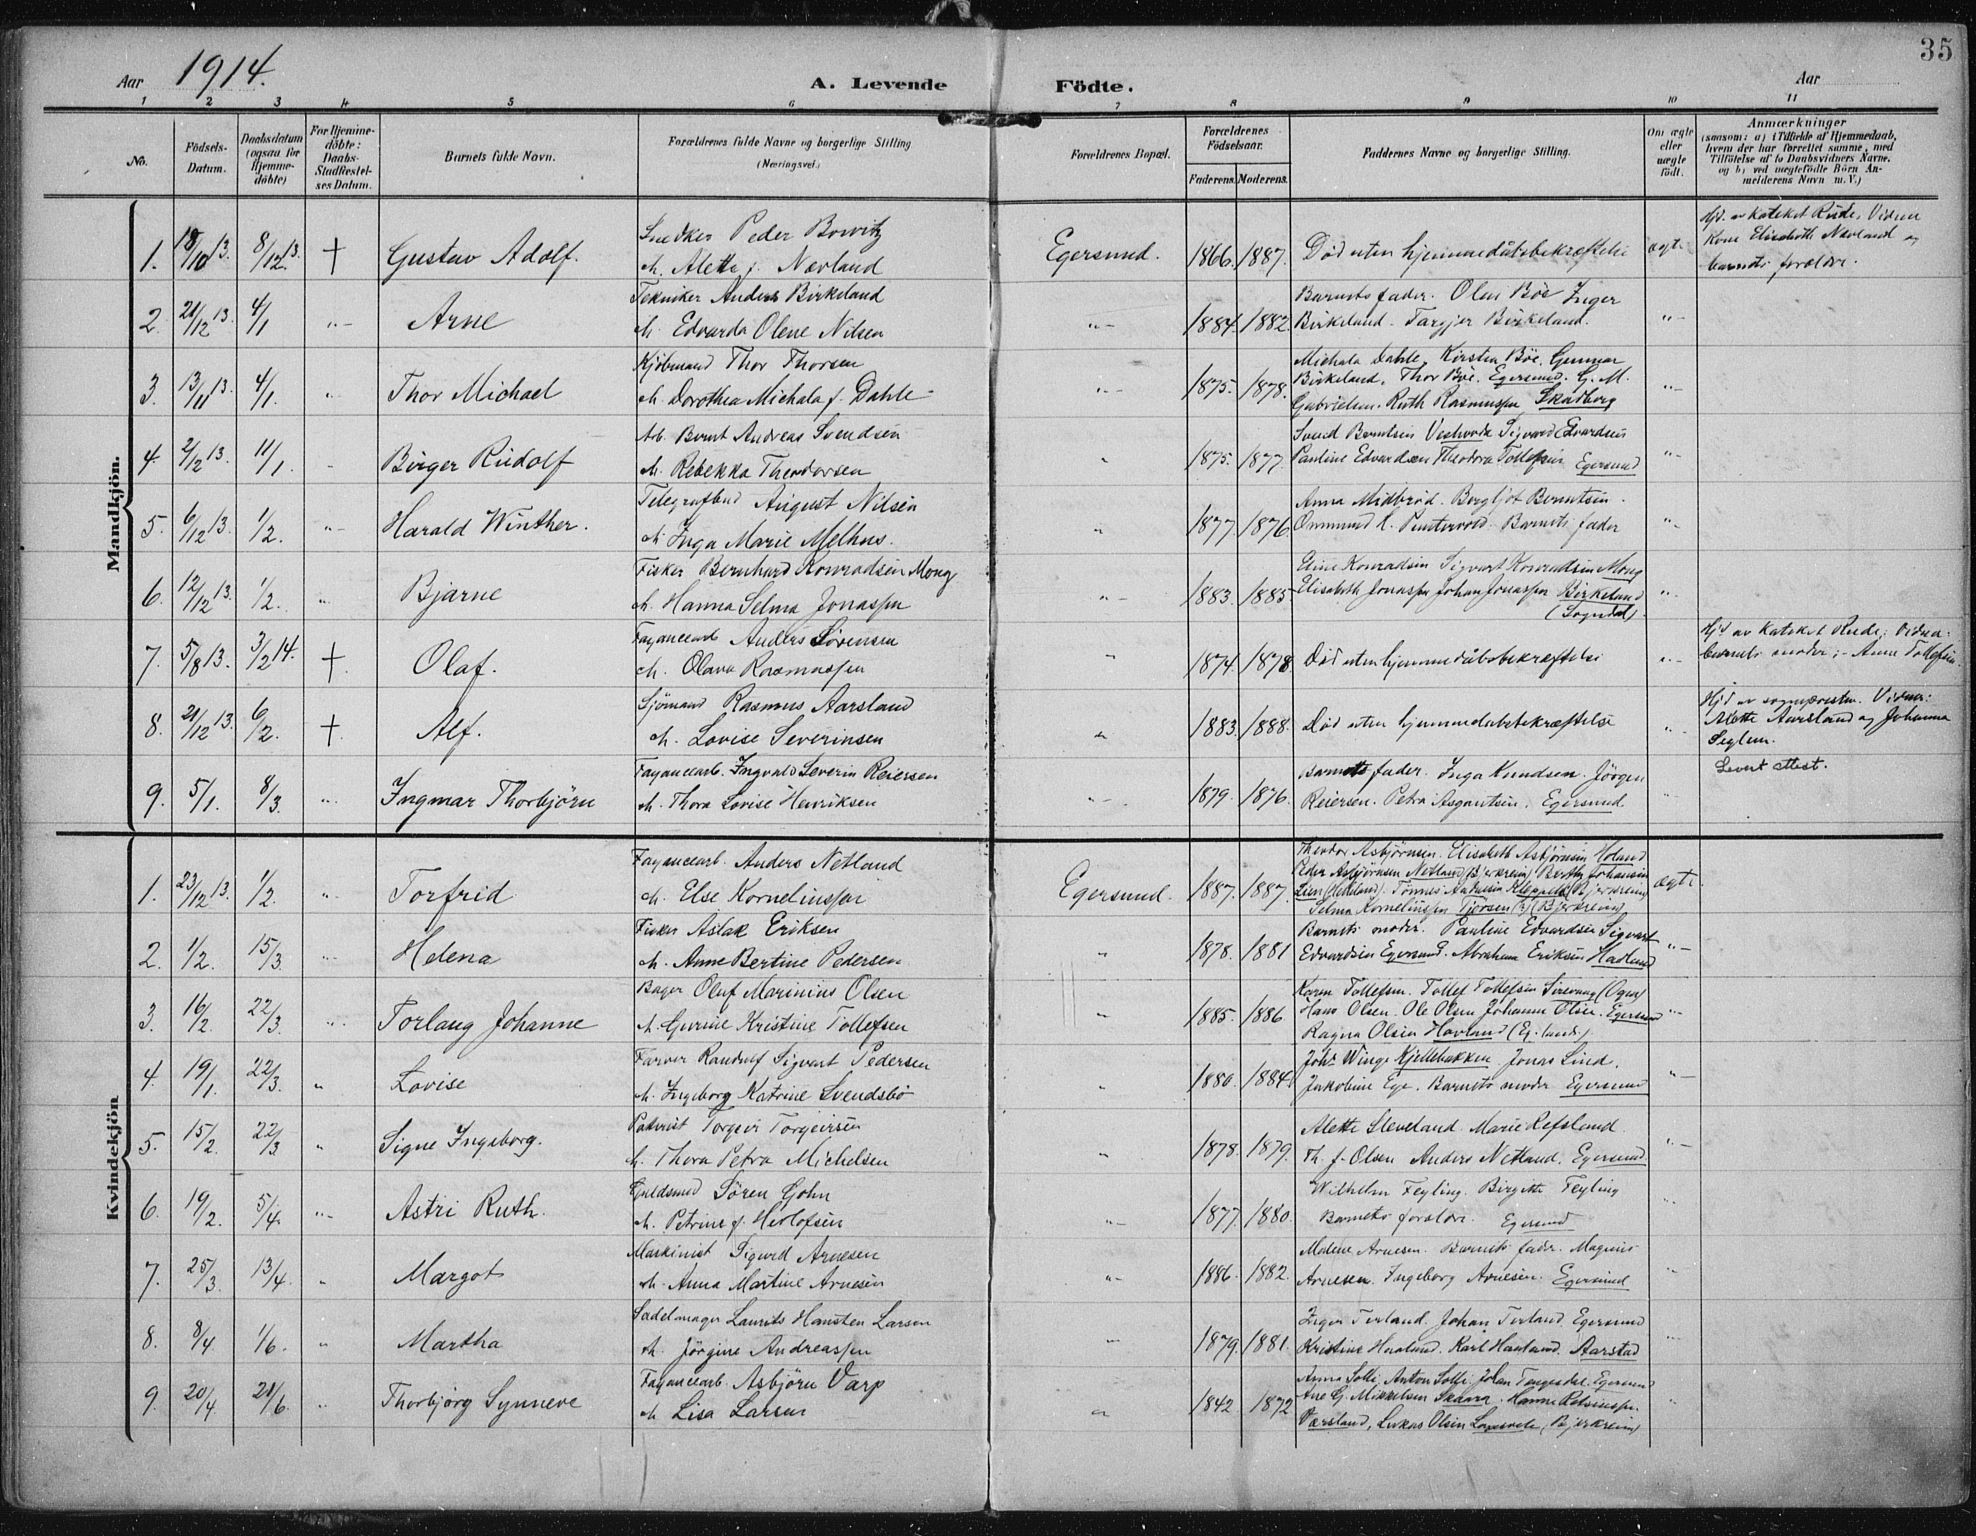 35
Aar 1914. A. Levende Födte. Aar
1 2 3 4 5 6 7 8 9 10 11
No. Födsels-Datum. Daabsdatum (ogsaa for Hjemmedöbte) For Hjemmedöbte: Daabs-Stadfæstelses Datum. Barnets fulde Navn. Forældrenes fulde Navne og borgerlige Stilling (Næringsvei.) Forældrenes Bopæl. Forældrenes Födselsaar. Faderens. Moderens. Faddernes Navne og borgerlige Stilling. Om ægte eller uægte födt. Anmærkninger (saasom: a) i Tilfælde af Hjemmedaab, hvem der har forrettet samme, med Tilföielse af to Daabsvidners Navne, og b) ved uægtefödte Börn Anmelderens Navn m. V.)
Mandkjön.
1. 18/10 13. 8/12 13. † Gustav Adolf. Snedker Peder Bowitz
M. Alette f. Nævland Egersund. 1866. 1887. Död uten hjemmedåbsbekræftelse ægte
Hjd. av kateket Rude. Vidner
Kone Elisabeth Nævland og
barnets forældre.
2. 21/12 13. 4/1 "- Arne Tekniker Anders Birkeland
M. Edvarda Olene Nilsen "- 1884. 1882. Barnets fader. Olen Böe Inger
Birkeland. Targjer Birkeland. "-
3. 13/11 13. 4/1. "- Thor Michael Kjöbmand Thor Thorsen
M. Dorothea Michala f. Dahle "- 1875. 1878. Michala Dahle, Kirsten Böe, Gunnar
Birkeland, Thor Böe. Egersund. G. M.
Gabrielsen. Ruth Rasmussen Skadberg "-
4. 2/12 13. 11/1. Birger Rudolf Arb. Bernt Andreas Svendsen
M. Rebekka Theodorsen " 1875. 1877. Svend Berntsen Sigvard Edvardsen
Pauline Edvardsen Theodora Tollefsen Egersund "-
5. 6/12 13. 1/2. "- Harald Winther. Telegrafbud August Nilsen
M. Inga Marie Melhus. " 1877. 1876. Anna Midbröd. Bergljot Berntsen.
Ommund Barnets fader "-
6. 12/12 13. 1/2. " Bjarne Fisker Bernhard Konradsen Mong
M. Hanna Selma Jonassen "- 1883. 1885 Eline Konradsen Sigvart Konradsen Mong
Elisabeth Jonassen Johan Jonassen Birkeland
(Sogndal). "-
7. 5/8 13. 3/2 14. † Olaf. Fayancearb Anders Sörensen
M. Olava Rasmussen " 1874. 1878. Död uten hjemmedåbsbekræftelse "-
Hjd av kateket Rude; vidner:
barnets moder; - Anne Tollefsen.
8. 21/12 13. 6/2. † Alf. Sjömand Rasmus Aarsland
M. Lovise Severinsen " 1883. 1888. Död uten hjemmedåbsbekræftelse "-
Hjd av sognepresten. Vidner:
Alette Aarsland og Johanna
Seglem.
9. 5/1. 8/3 "- Ingmar Thorbjörn Fayancearb. Ingvald Severin Reiersen
M. Thora Lovise Henriksen "- 1879. 1876. Barnets fader. Inga Knudsen. Jörgen
Reiersen. Petra Asgautsen. Egersund
Levert attest.
Kvindekjön
1. 23/12 13. 1/2. "- Torfrid Fayancearb. Anders Netland
M. Else Kornelinssen Egersund. 1887. 1887. Theodor Asbjörnsen. Elisabeth Asbjörnsen Holand
Peder Asbjörnsen Netland (Bjerkreim) Berthe Johansen
Lien. Tönnes Andersen (Bjerkreim)
Selma Kornelinssen (Bjerkreim) ægte
2. 1/2. 15/3. "- Helena Fisker Aslak Eriksen
M. Anne Bertine Pedersen " 1878. 1881 Barnets moder. Pauline Edvardsen Sigvart
Edvardsen Egersund. Abraham Eriksen Hadland "-
3. 16/2. 22/3. "- Torlaug Johanne Bager Oluf Marinius Olsen
M. Gurine Kristine Tollefsen " 1885. 1886. Karen Tollefsen. Tollef Tollefsen Sirevaag (Ogna)
Hans Olsen. Ole Olsen Johanna Olsen. Egersund
Ragna Olsen Havland (Eg. lands.) "-
4. 19/1. 22/3. " Lovise Farver Randulf Sigvart Pedersen
M. Ingeborg Katrine Svendsbö " 1880. 1884. Johs Winge Kjellebakken Jonas Lind.
Jakobine Ege. Barnets moder Egersund "-
5. 15/2. 22/3 " Signe Ingeborg. Torgeir Torgeirsen
M. Thora Petra Michelsen " 1878. 1879. Alette Sleveland. Marie Refsland.
Th. f. Olsen Anders Netland. Egersund "-
6. 19/2. 5/4. "- Astri Ruth. Guldsmed Sören Gohn
M. Petrine f. Herlofsen "- 1877. 1880. Wilhelm Feyling. Birgitte Feyling
Barnets forældre. Egersund "
7. 25/3 13/4. " Margot Maskinist Sigurd Arnesen
M. Anna Martine Arnesen "- 1886. 1882. Malene Arnesen. Barnets fader. Magnus
Arnesen. Ingeborg Arnesen. Egersund "
8. 8/4 1/6. " Martha Sadelmager Laurits Hansten Larsen
M. Jörgine Andreassen "- 1879. 1881. Inger Terland. Johan Terland. Egersund
Kristine Haaland. Karl Haaland. Aarstad "
9. 20/4 21/6 "- Thorbjörg Synneve Fayancearb. Asbjörn Varp
M. Lisa Larsen " 1842 1872 Anna Solli, Anton Solli, Johan Tengesdal. Egersund
Ane G. Mikkelsen Skaara. Hanne
Lukas Olsen (Bjerkreim) "